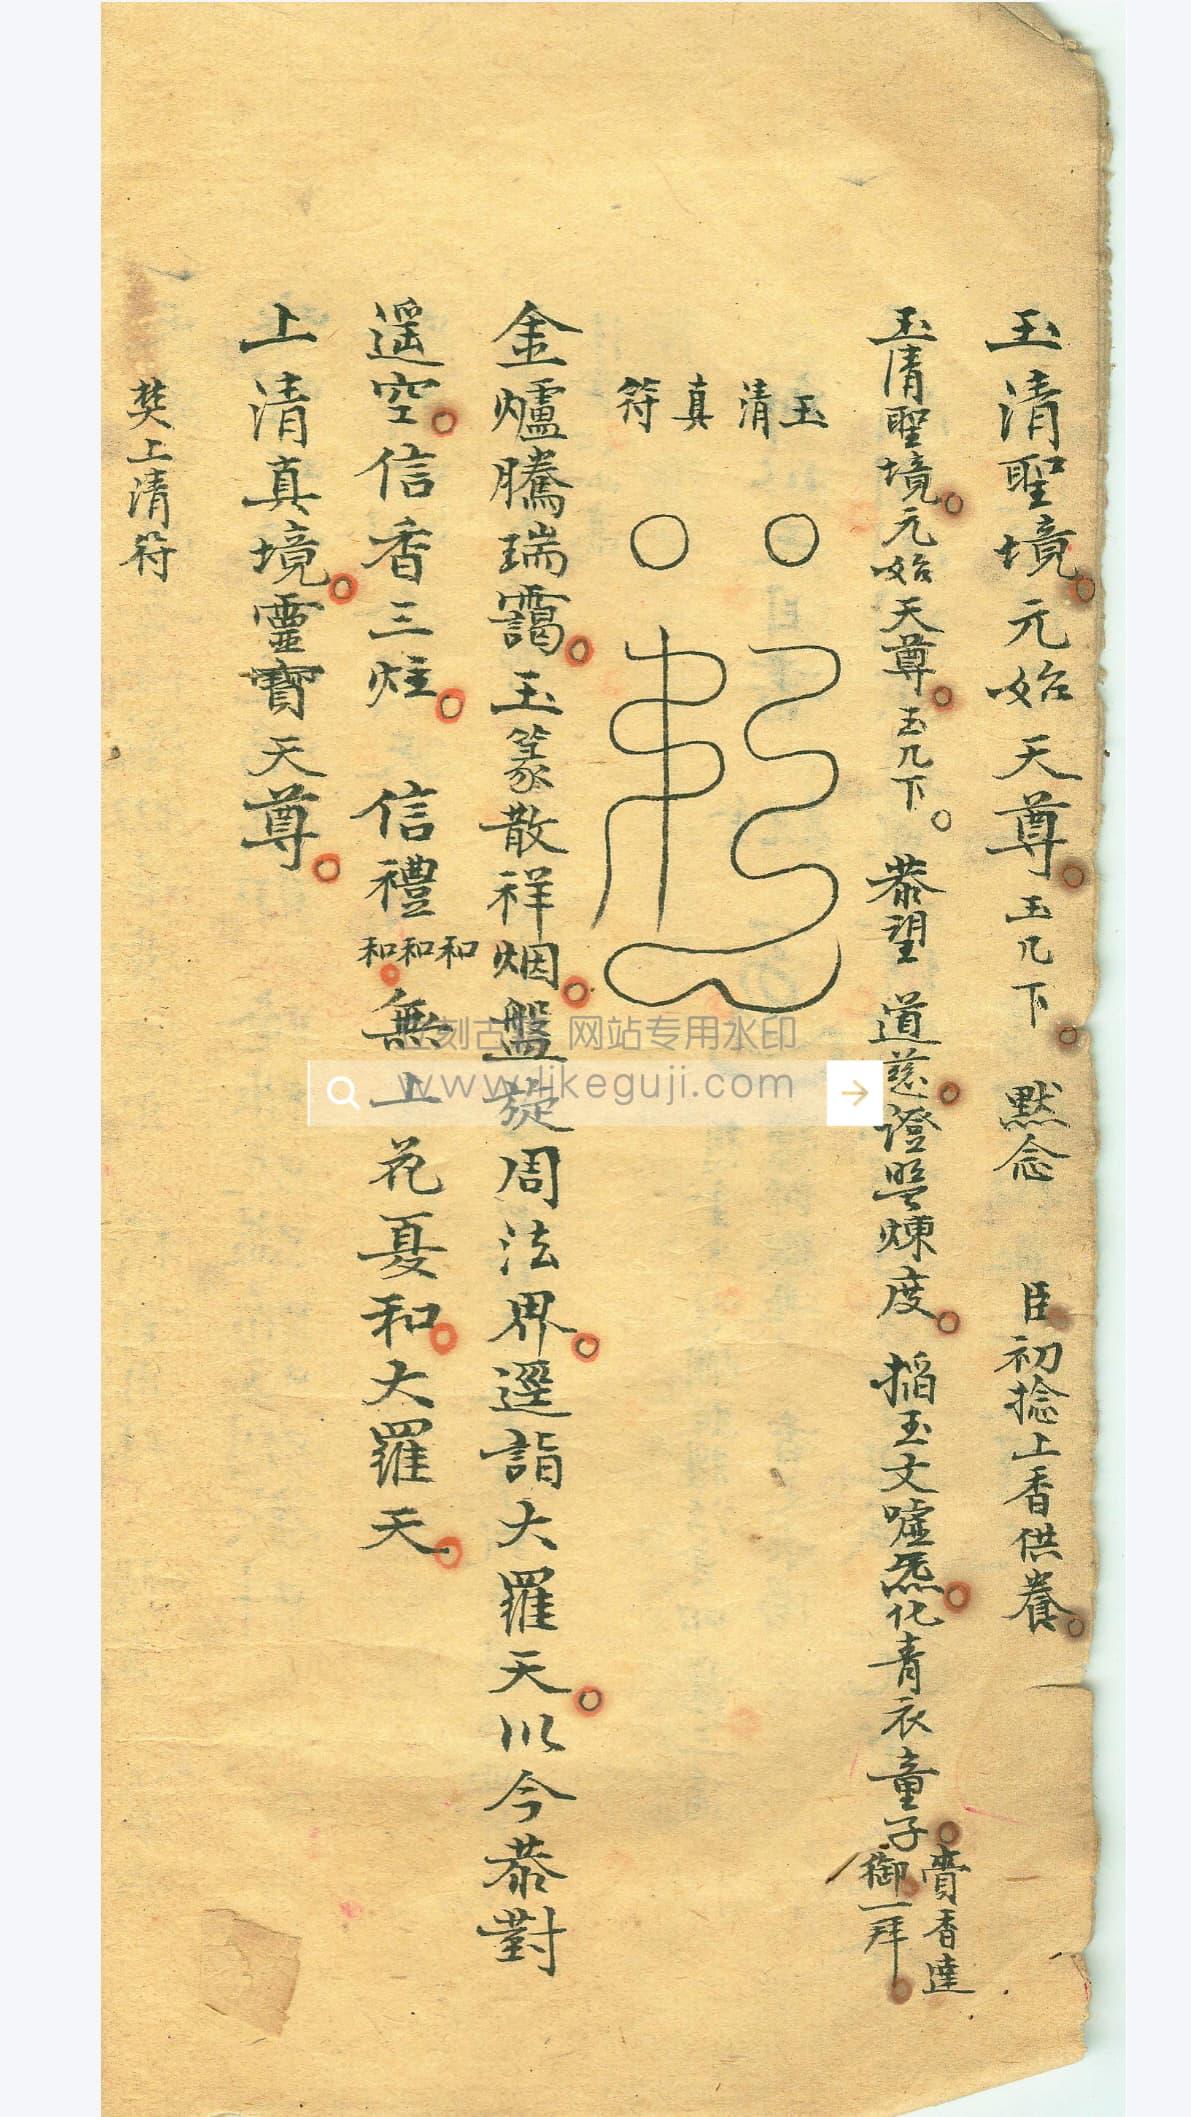 玉清聖境元始天尊玉几下 默念 臣初捻上香供養
玉清聖境元始天尊玉几下 恭望 道慈證盟煉度 搯玉文噓炁化青衣童子
賫香達
御一拜
玉清真符
金爐騰瑞靄玉篆散祥烟盤旋周法界逕詣大羅天以今恭對
遥空信香三炷 信禮和和和無上花夏和大羅天
上清真境靈寶天尊
焚上清符
刻古 网站专用水印
www.likeguji.com